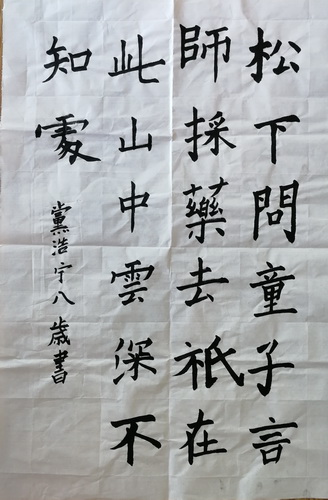 松下問童子言
師採藥去祇在
此山中雲深不
知處
黨浩宇八歲書